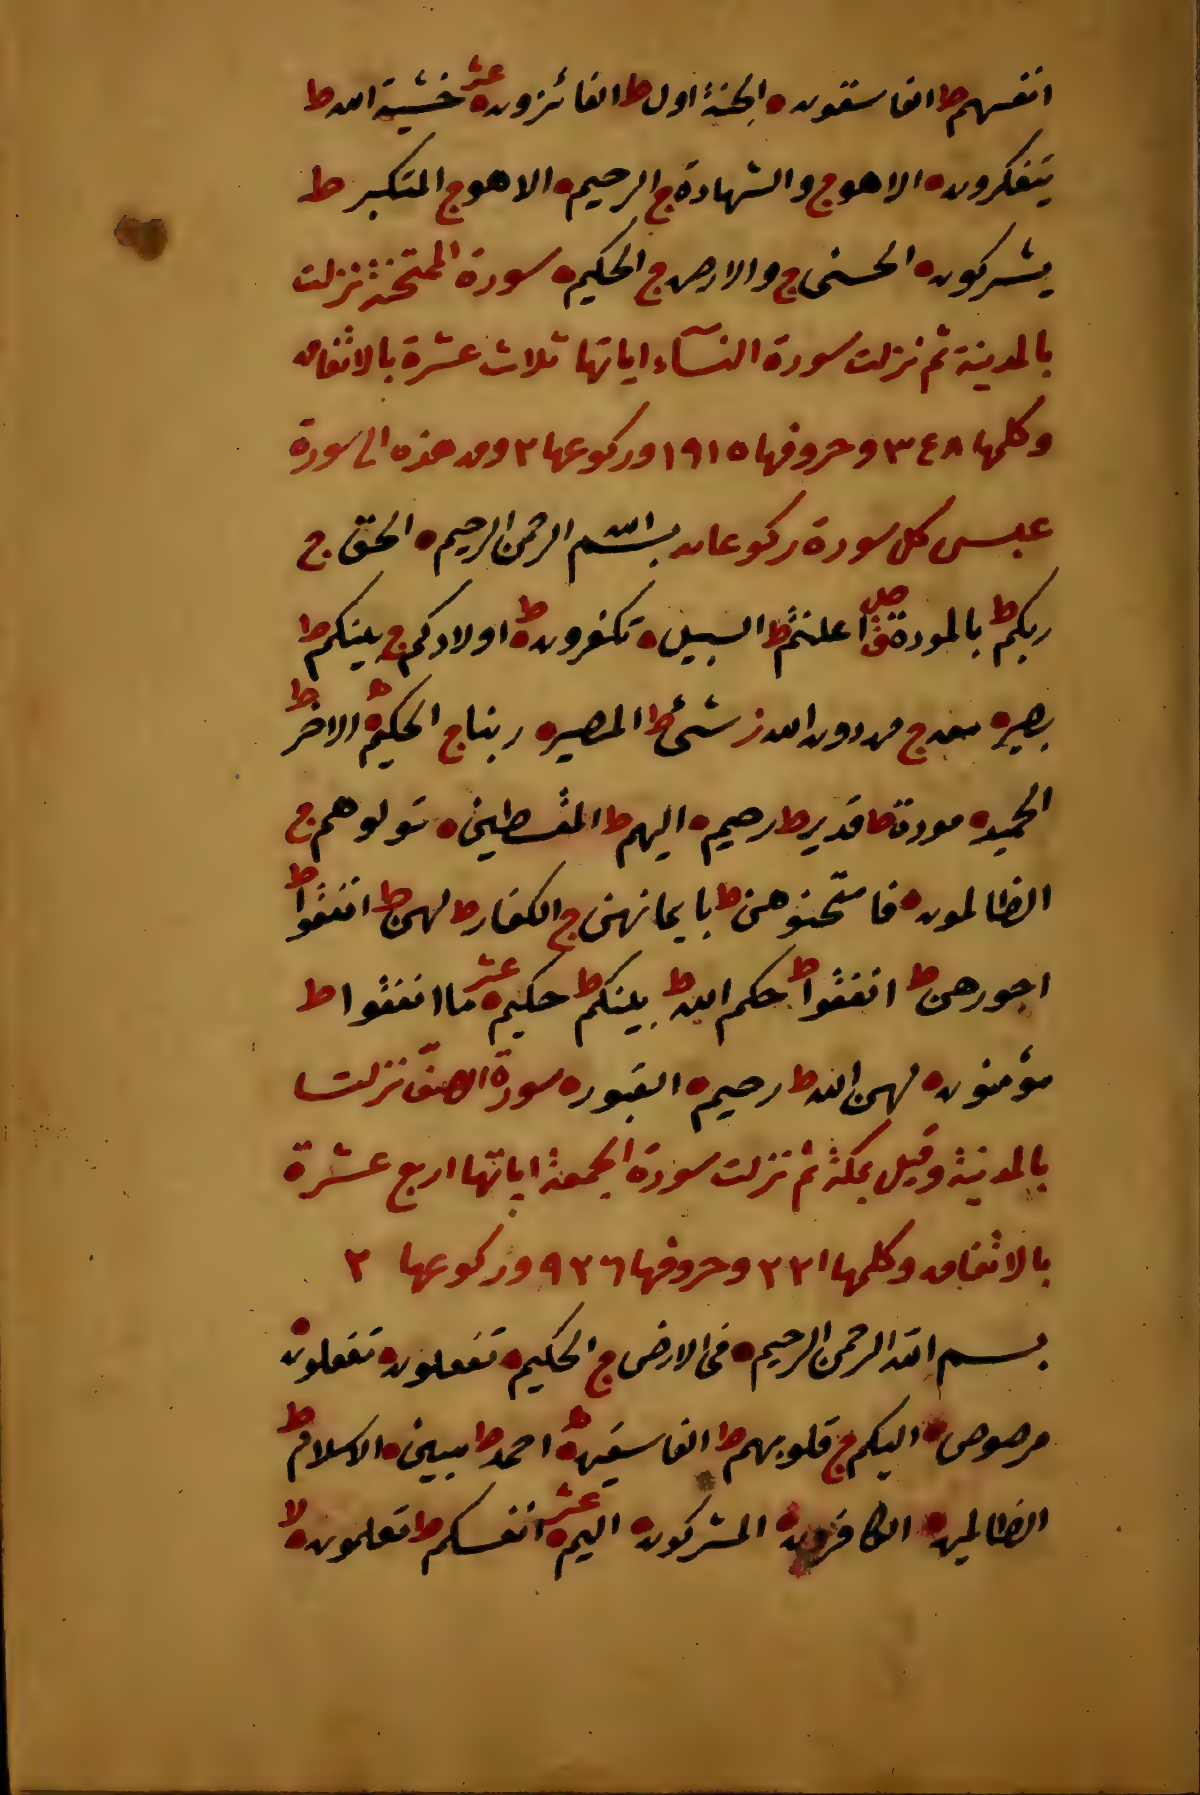 انفسهم ط الفاسقون ه الجنة اول ط الفائزون ه عشر خشية الله ط
يتفكرون ه الا هو ج والشهادة ج الرحيم ه الا هو ج المتكبر ط
يشركون ه الحسنى ج والارض ج الحكيم ه سورة الممتحنة نزلت
بالمدينة ثم نزلت سورة النسآء اياتها ثلاث عشرة بالاتفاق
وكلمها ٣٤٨ وحروفها ١٩١٥ وركوعها ٢ ومن هذه الى سورة
عبس كل سورة ركوعان بسم الله الرحمن الرحيم ه الحق ج
ربكم ط بالمودة ق صلى اعلنتم ط السبيل ه تكفرون ه ط اولادكم ج بينكم ط
بصير ه معه ج من دون الله ز شئ ط المصير ه ربنا ج الحكيم ه الاخر ط
الحميد ه مودة ط قدير ط رحيم ه اليهم ط المقسطين ه تولوهم ج
الظالمون ه فامتحنوهن ط بايمانهن ج الكفار ط لهن ط انفقوا ط
اجورهن ط انفقوا ط حكم الله ط بينكم ط حكيم ه عشر ما انفقوا ط
مؤمنون ه لهن الله ط رحيم ه القبور ه سورة الصف نزلت
بالمدينة وقيل بمكة ثم نزلت سورة الجمعة اياتها اربع عشرة
بالاتفاق وكلمها ٢٢١ وحروفها ٩٢٦ وركوعها ٢
بسم الله الرحمن الرحيم ه فى الارض ج الحكيم ه تفعلون ه تفعلون ه
مرصوص ه اليكم ج قلوبهم ط الفاسقين ه احمد ط مبين ه الاسلام ط
الظالمين ه الكافرون ه المشركون ه اليم ه عشر انفسكم ط تعلمون ه لا